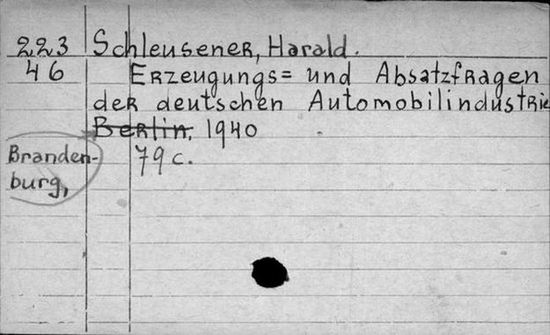 223 Schleusener, Harald.
46 Erzeugungs= und Absatzfragen
der deutschen Automobilindustrie
Berlin, 1940
Branden-
burg,
79 c.